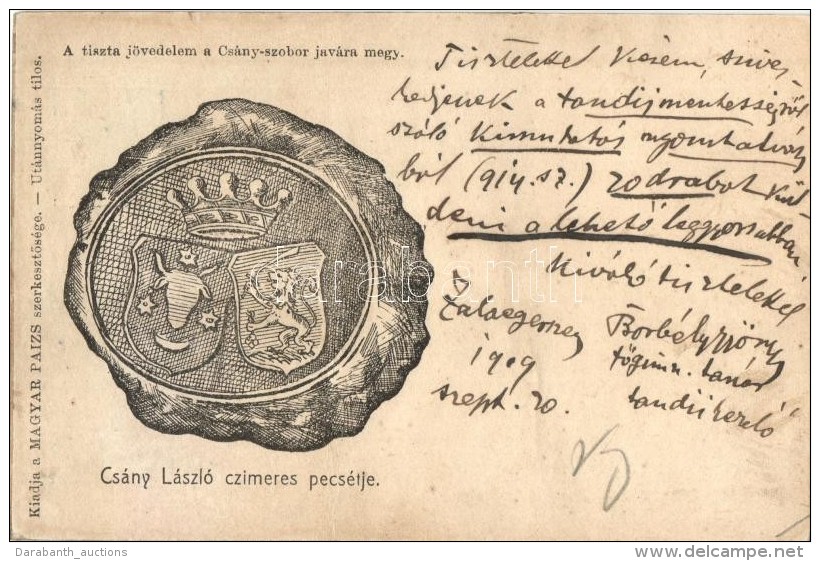 A tiszta jövedelem a Csány-szobor javára megy.
Kiadja a MAGYAR PAIZS szerkesztősége. — Utánnyomás tilos.
Tisztelettel kérem, szíves-
kedjenek a tandíjmentességről
szóló kimutatás nyomtatvány
ból (914. sz.) 20 drabot kül
deni a lehető leggyorsabban
Kiváló tisztelettel
Zalaegerszeg Borbély György
1909 főgimn. tanár
szept. 20. tandíjkezelő
Csány László czimeres pecsétje.
darabanth
Darabanth_auctions
www.delcampe.net